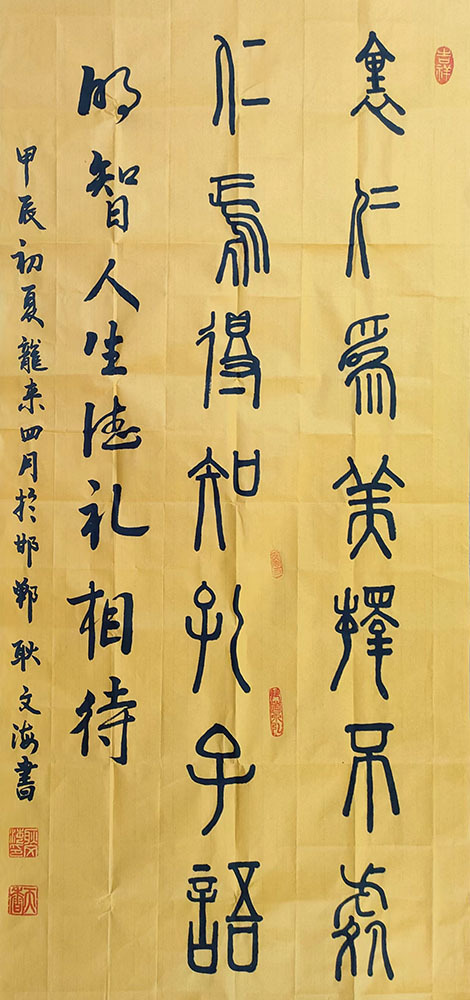 吉祥
裏仁爲美擇不處
仁焉得知孔子語
明智人生德礼相待
甲辰初夏龍来四月於邯鄲耿文海書